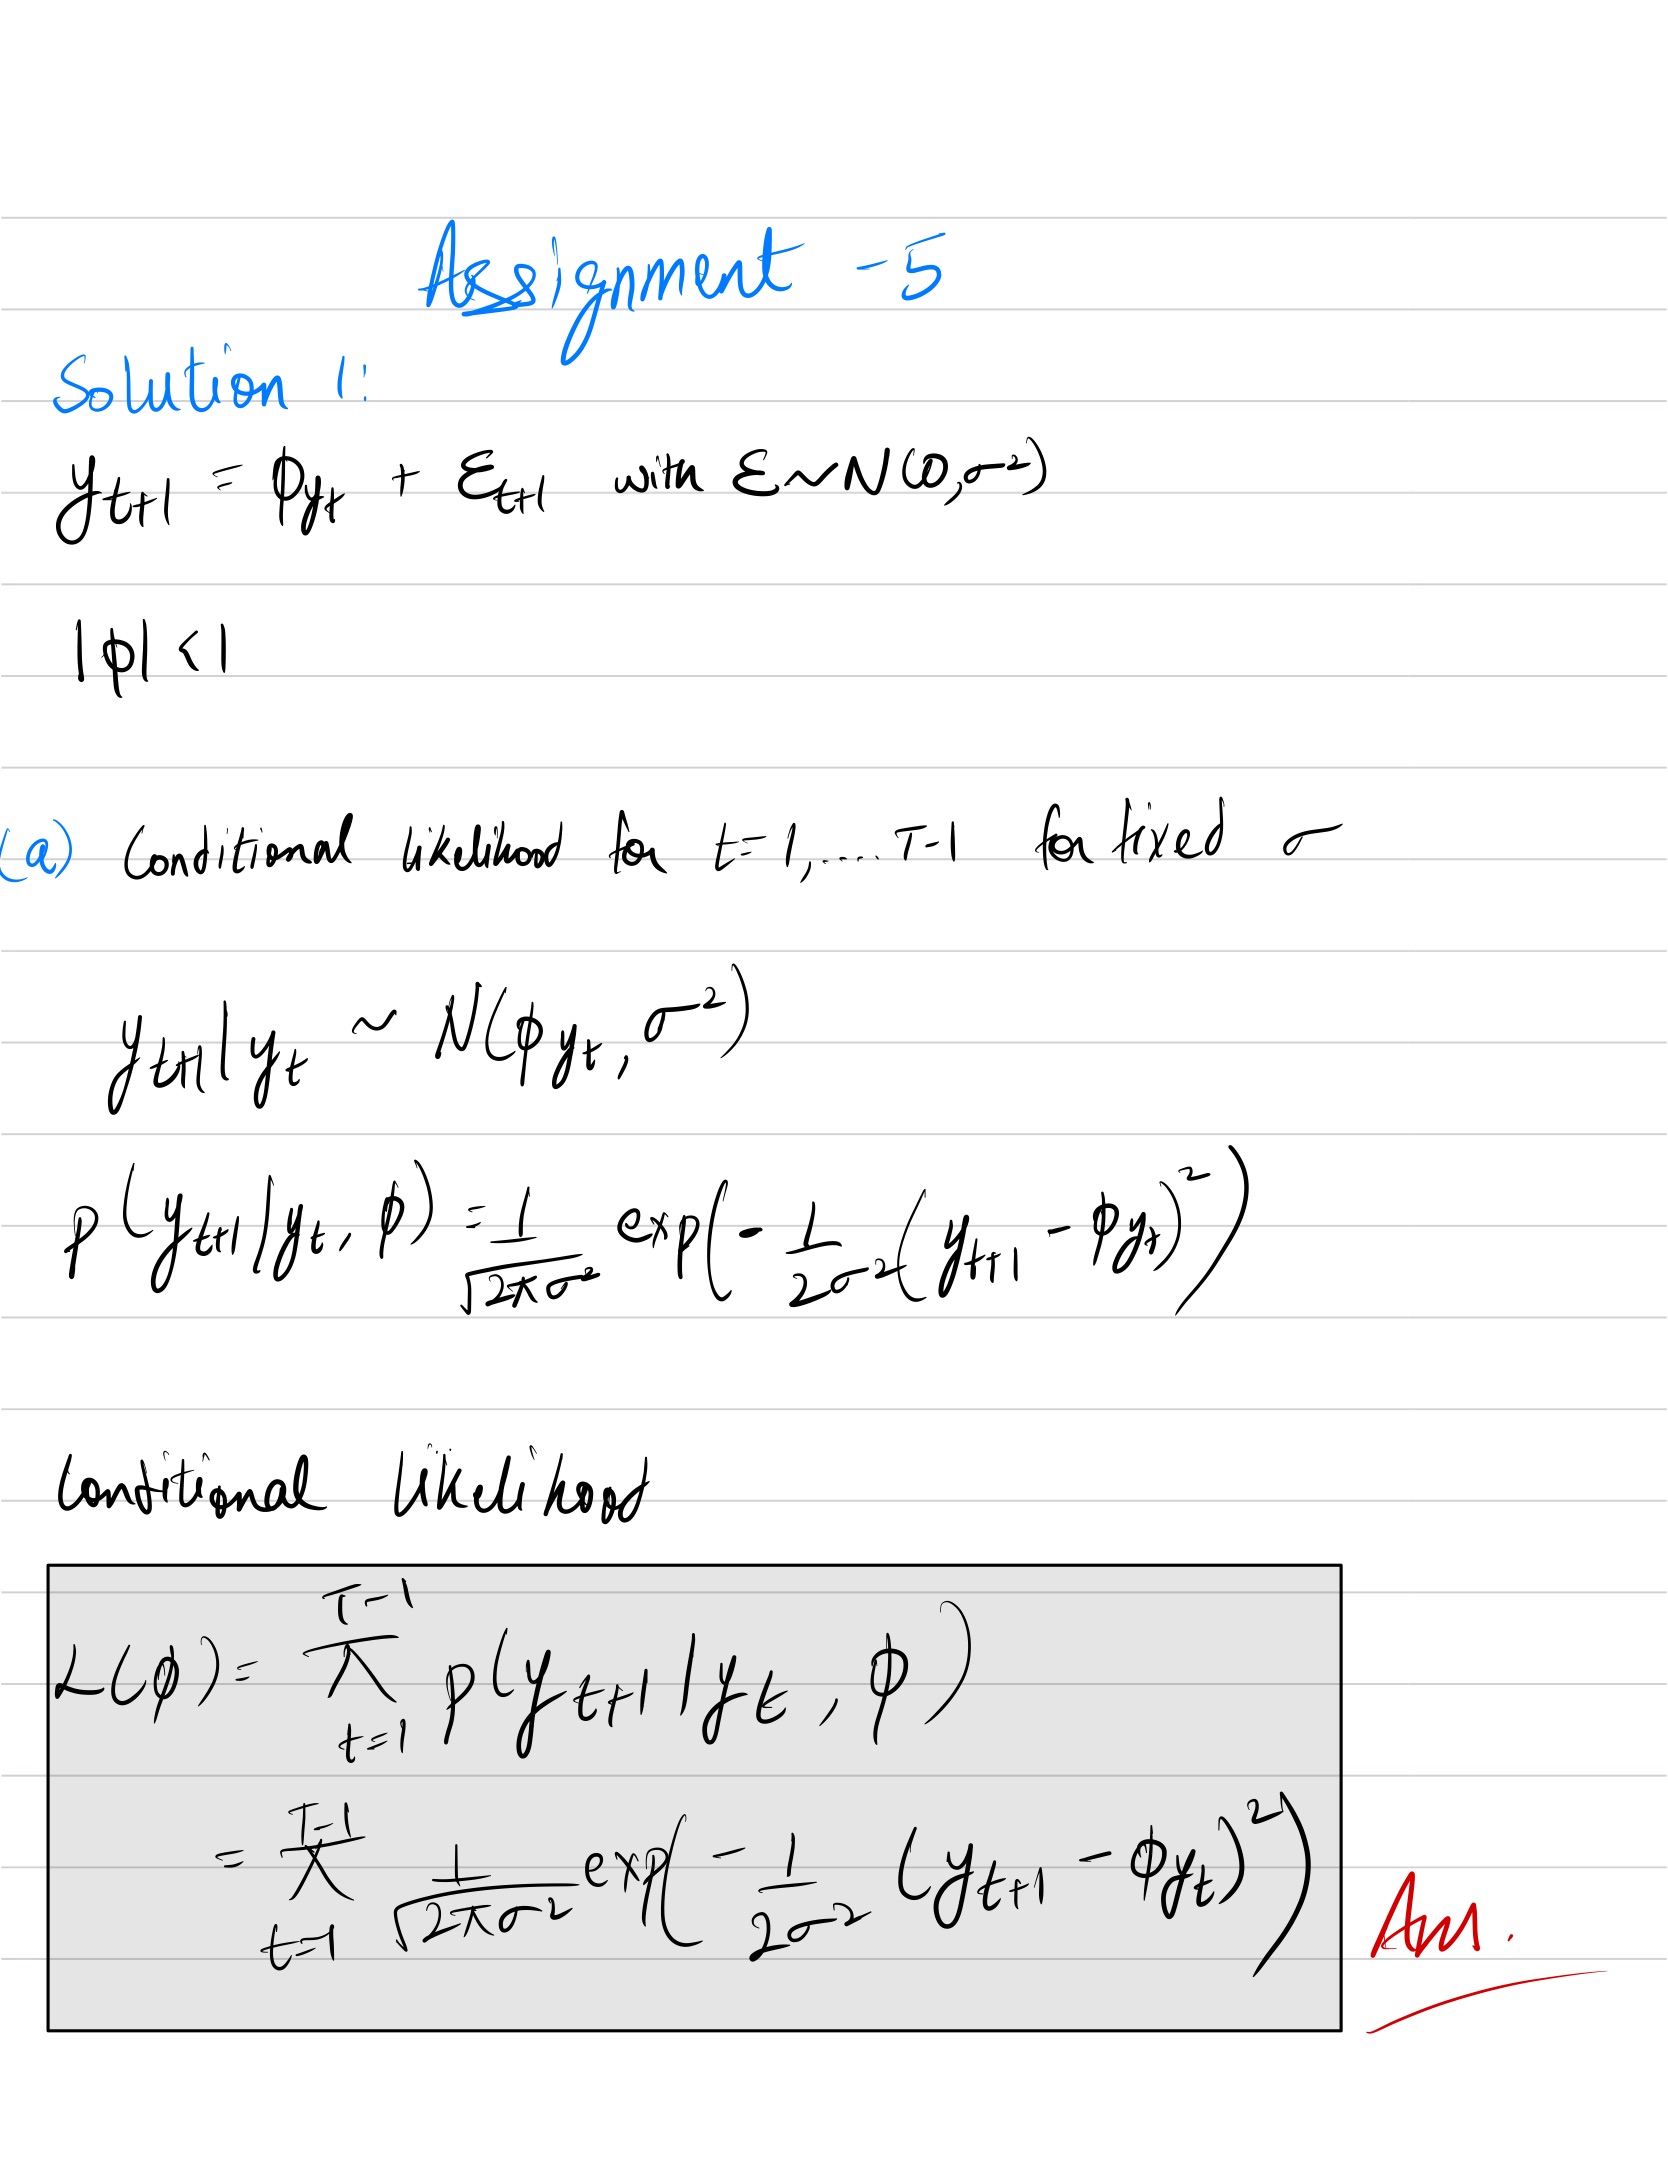 Assignment - 5
Solution 1:
y_{t+1} = ϕy_t + ε_{t+1} with ε ~ N(0, σ²)
|ϕ| < 1
(a) Conditional likelihood for t = 1, .... T-1 for fixed σ
y_{t+1} | y_t ~ N(ϕy_t, σ²)
p(y_{t+1} | y_t, ϕ) = 1/√(2πσ²) exp(- 1/(2σ²) (y_{t+1} - ϕy_t)²)
Conditional Likelihood
L(ϕ) = π_{t=1}^{T-1} p(y_{t+1} | y_t, ϕ)
= π_{t=1}^{T-1} 1/√(2πσ²) exp(- 1/(2σ²) (y_{t+1} - ϕy_t)²)
Ans.